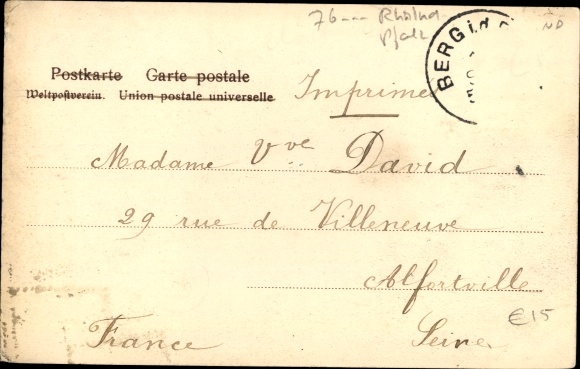 76 --- Rheinld
Pfalz
ND
BERG
Postkarte Carte postale
Weltpostverein. Union postale universelle
Imprimé
Madame Vve David
29 rue de Villeneuve
Alfortville
€15
France Seine